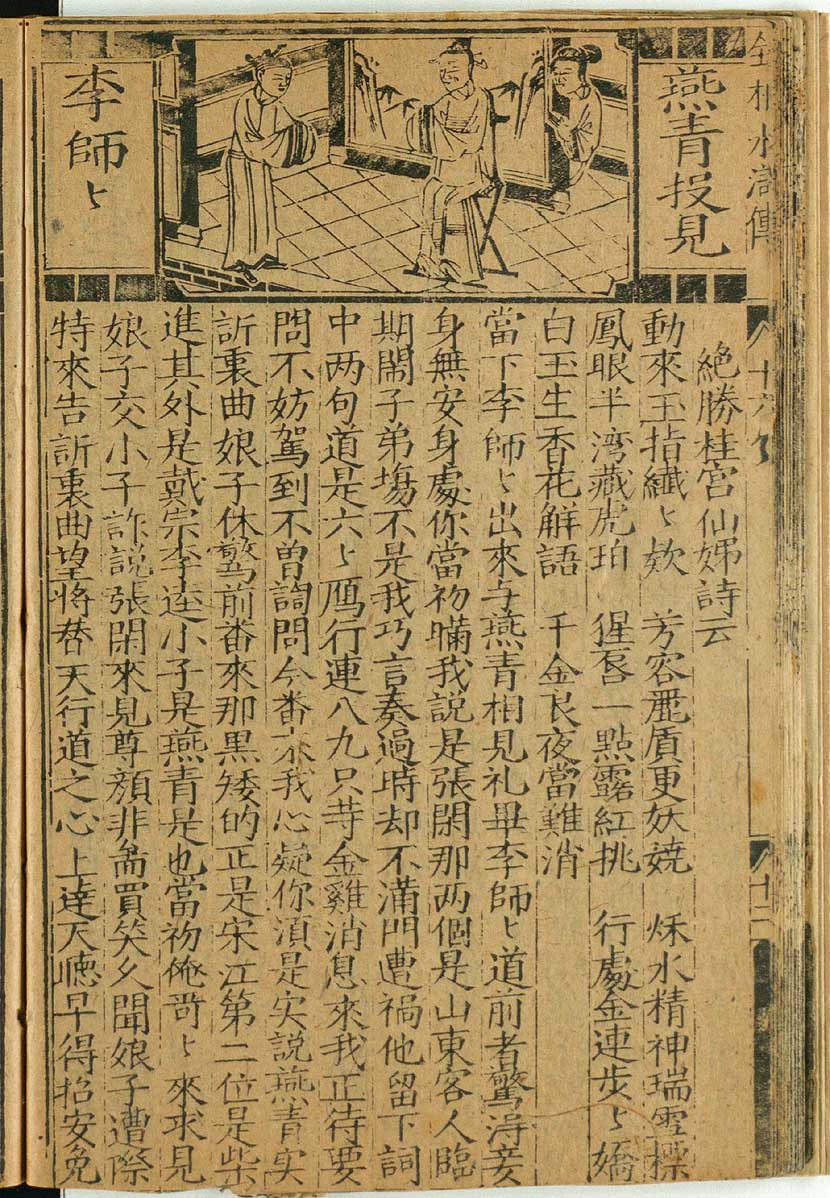 全相水滸傳
燕青投見
李師〻
八十六回
十二
絶勝桂宮仙姊詩云
動來玉指纖〻欸　芳容䴡质更妖娆　秌水精神瑞雪標
鳳眼半湾藏虎珀　猩唇一點露紅挑　行處金連步〻嬌
白玉生香花解語　千金艮夜當難消
當下李師〻出來与燕青相見礼畢李師〻道前者驚淂妾
身無安身處你當初瞞我説是張閑那两個是山東客人臨
期閙子弟塲不是我巧言奏過時却不滿門遭禍他留下詞
中两句道是六〻鴈行連八九只䓁金雞消息來我正待要
問不妨駕到不曽詢問今番來我心疑你須是实説燕青实
訢裏曲娘子休驚前番來那黒矮的正是宋江第二位是柴
進其外是戴宗李逵小子是燕青是也當初俺哥〻來求見
娘子交小子詐説張閑來見尊顔非啚買笑久聞娘子遭際
特來告訢裏曲望將替天行道之心上達天聴早得招安免